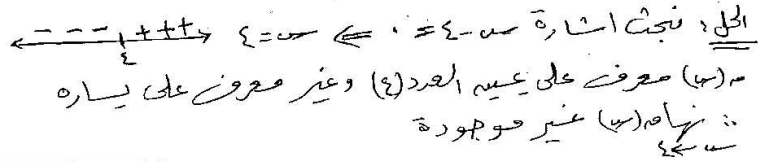 الحل: نبحث اشارة س-٤ = ٠ ⇐ س = ٤ - - - + + + ٤
ق(س) معرف على يمين العدد (٤) وغير معرف على يساره
∴ نهــا ق(س) غير موجودة
س←٤